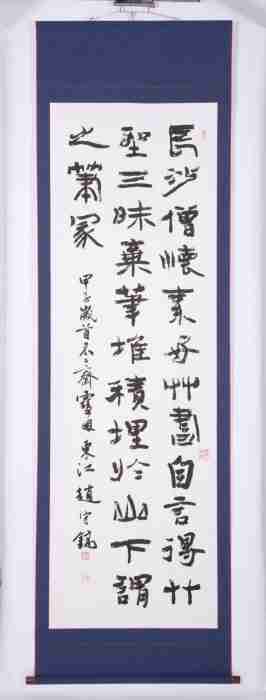 長沙僧懷素好艸書自言得艸
聖三昧棄筆堆積埋於山下謂
之筆冢
甲子歲首不二齋東江趙守鎬